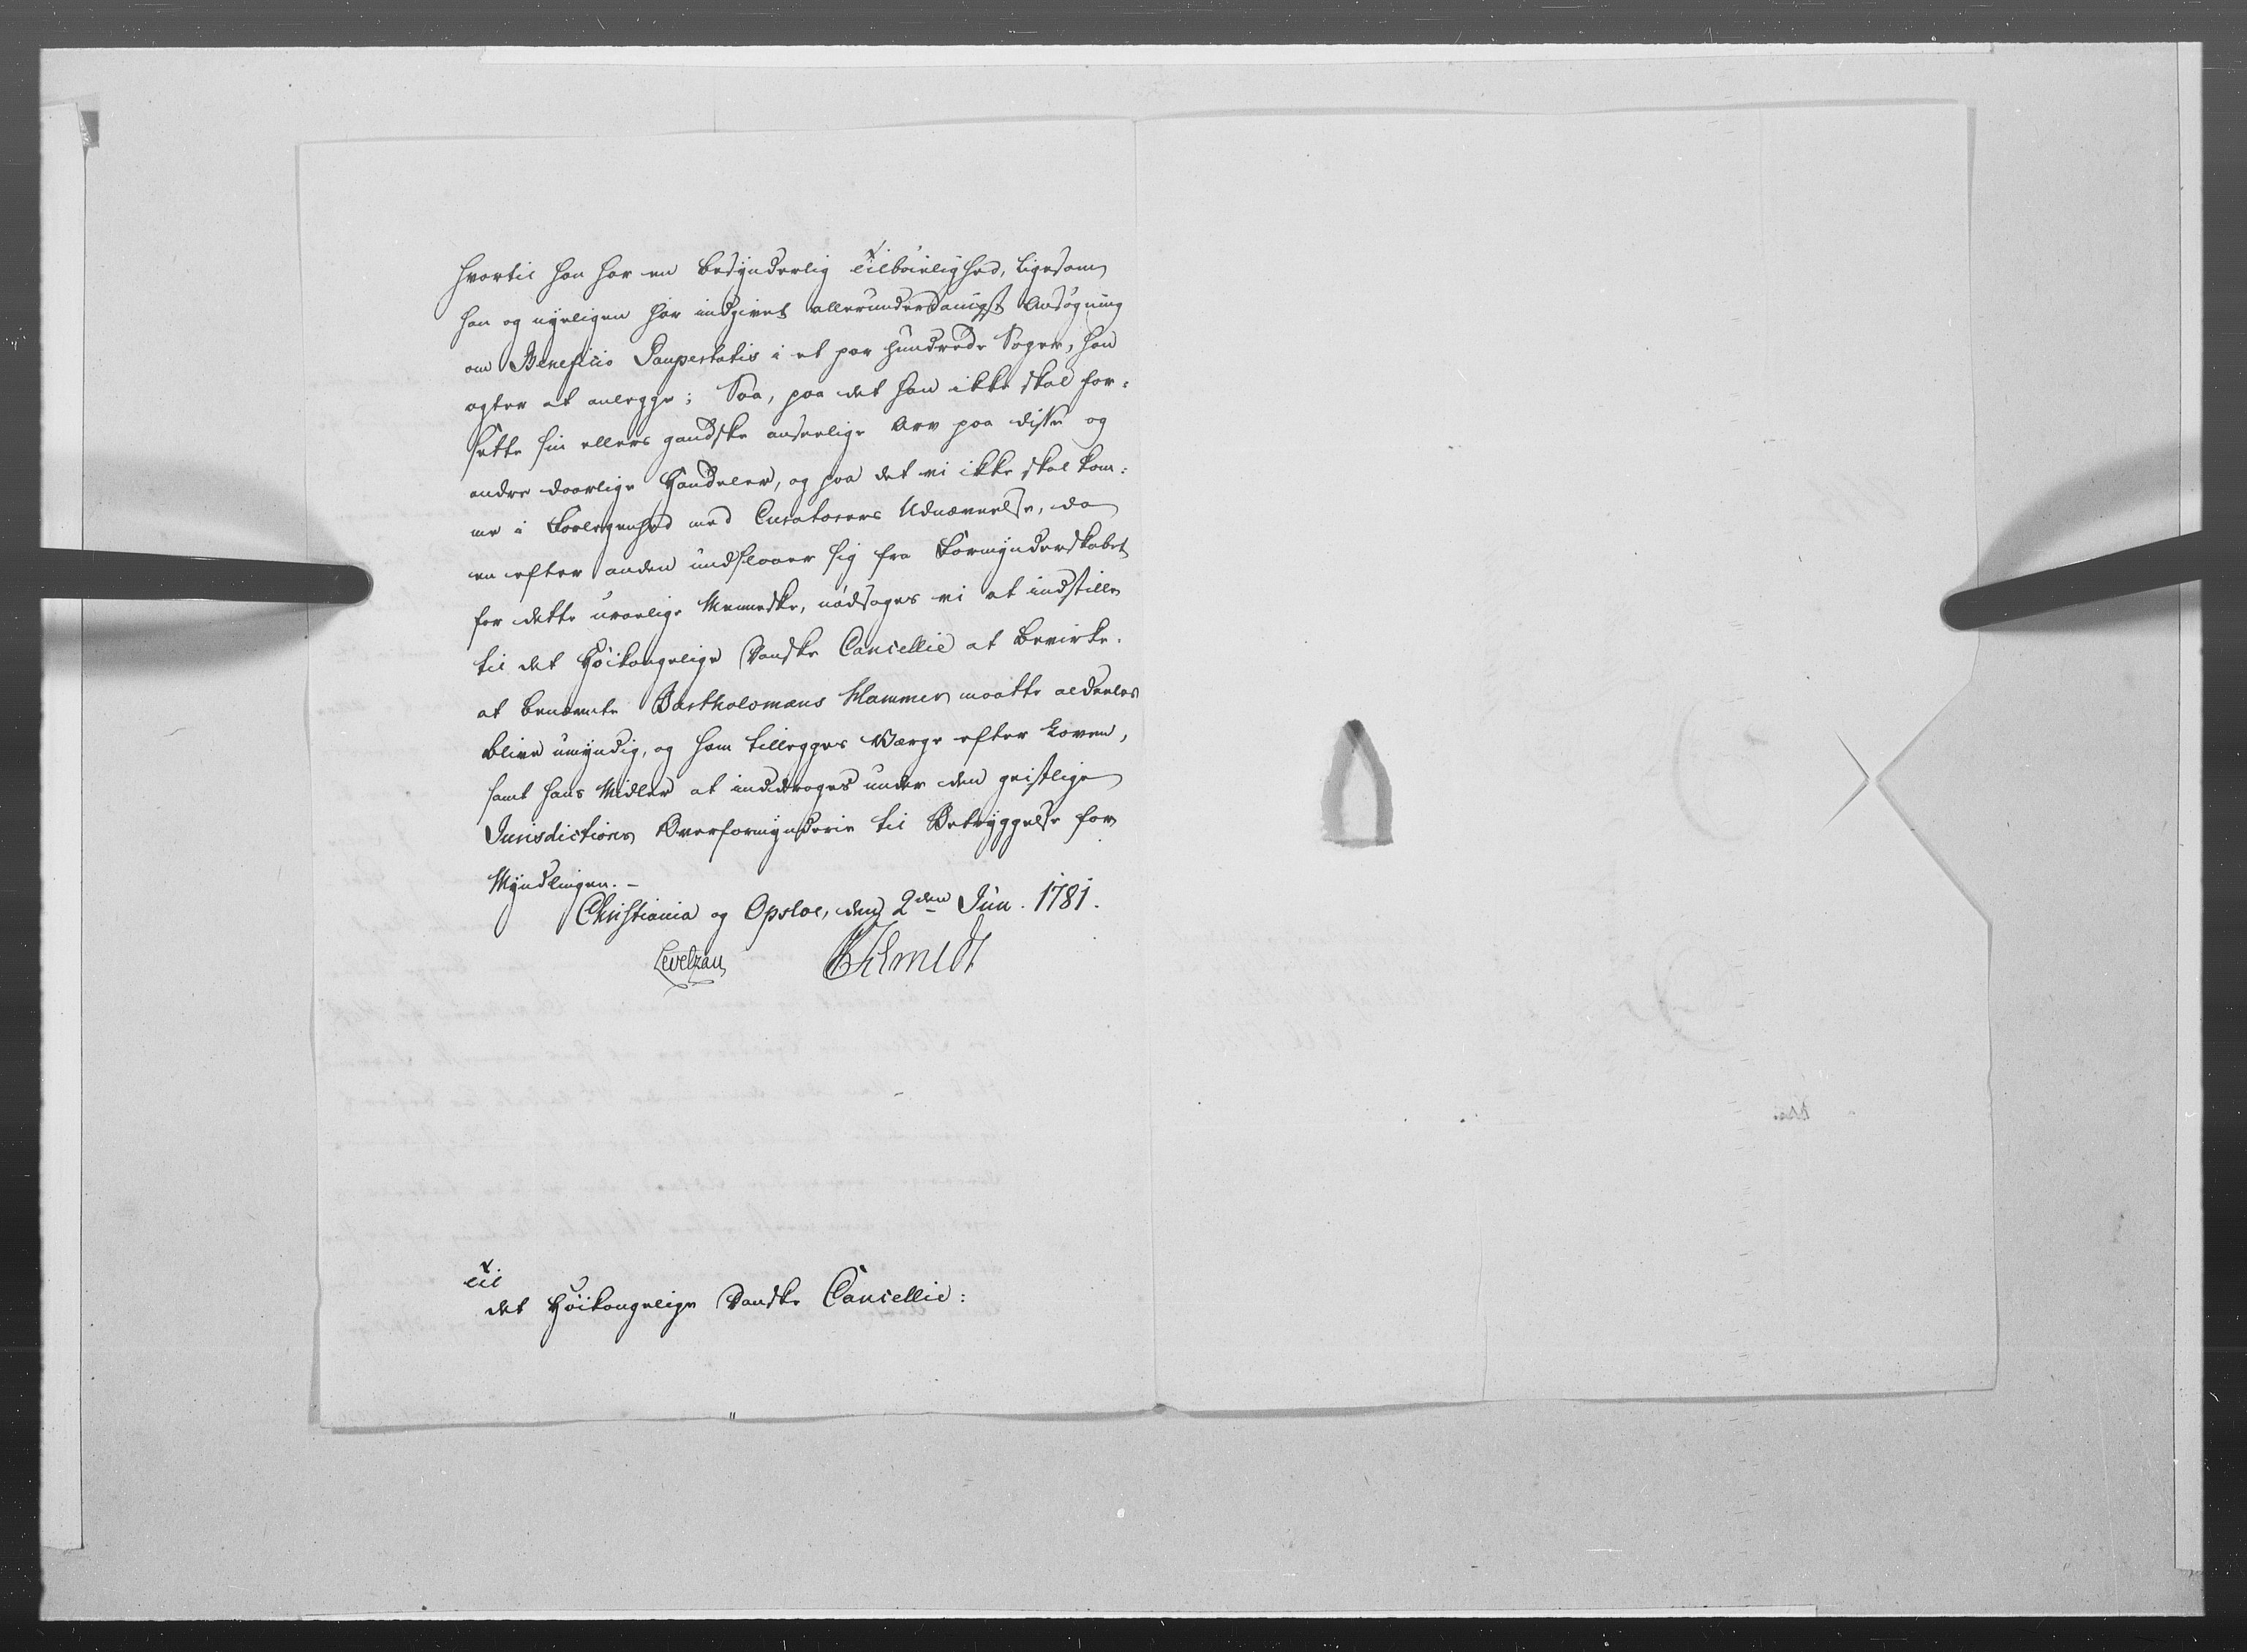 hvortil han har en besynderlig Tilböielighed, ligesom
han og nyeligen har indgivet allerunderdanigst Ansögning
om Beneficio Paupertatis i et par hundrede Sager, han
agter at anlegge; Saa, paa det han ikke skal for-
sette sin ellers gandske anseelige Arv paa disse og
andre daarlige Handeler, og paa det vi ikke skal kom-
me i Forlegenhed med Curators Udnævnelse, da
en efter anden undslaaer sig fra Formynderskabet
for dette urolige Menneske, nödsages vi at indstille
til det Höikongelige Danske Cancellie at bevirke.
at benævnte Bartholomæus Hammer maatte aldeeles
blive umyndig, og ham tillegges Værge efter Loven,
samt hans Midler at inddrages under den geistlige
Jurisdictions Overformynderie til Betryggelse for
Myndlingen. –
Christiania og Opsloe, den 2den Jun. 1781.
Levetzau Schmidt
Til
det Höikongelige Danske Cancellie: